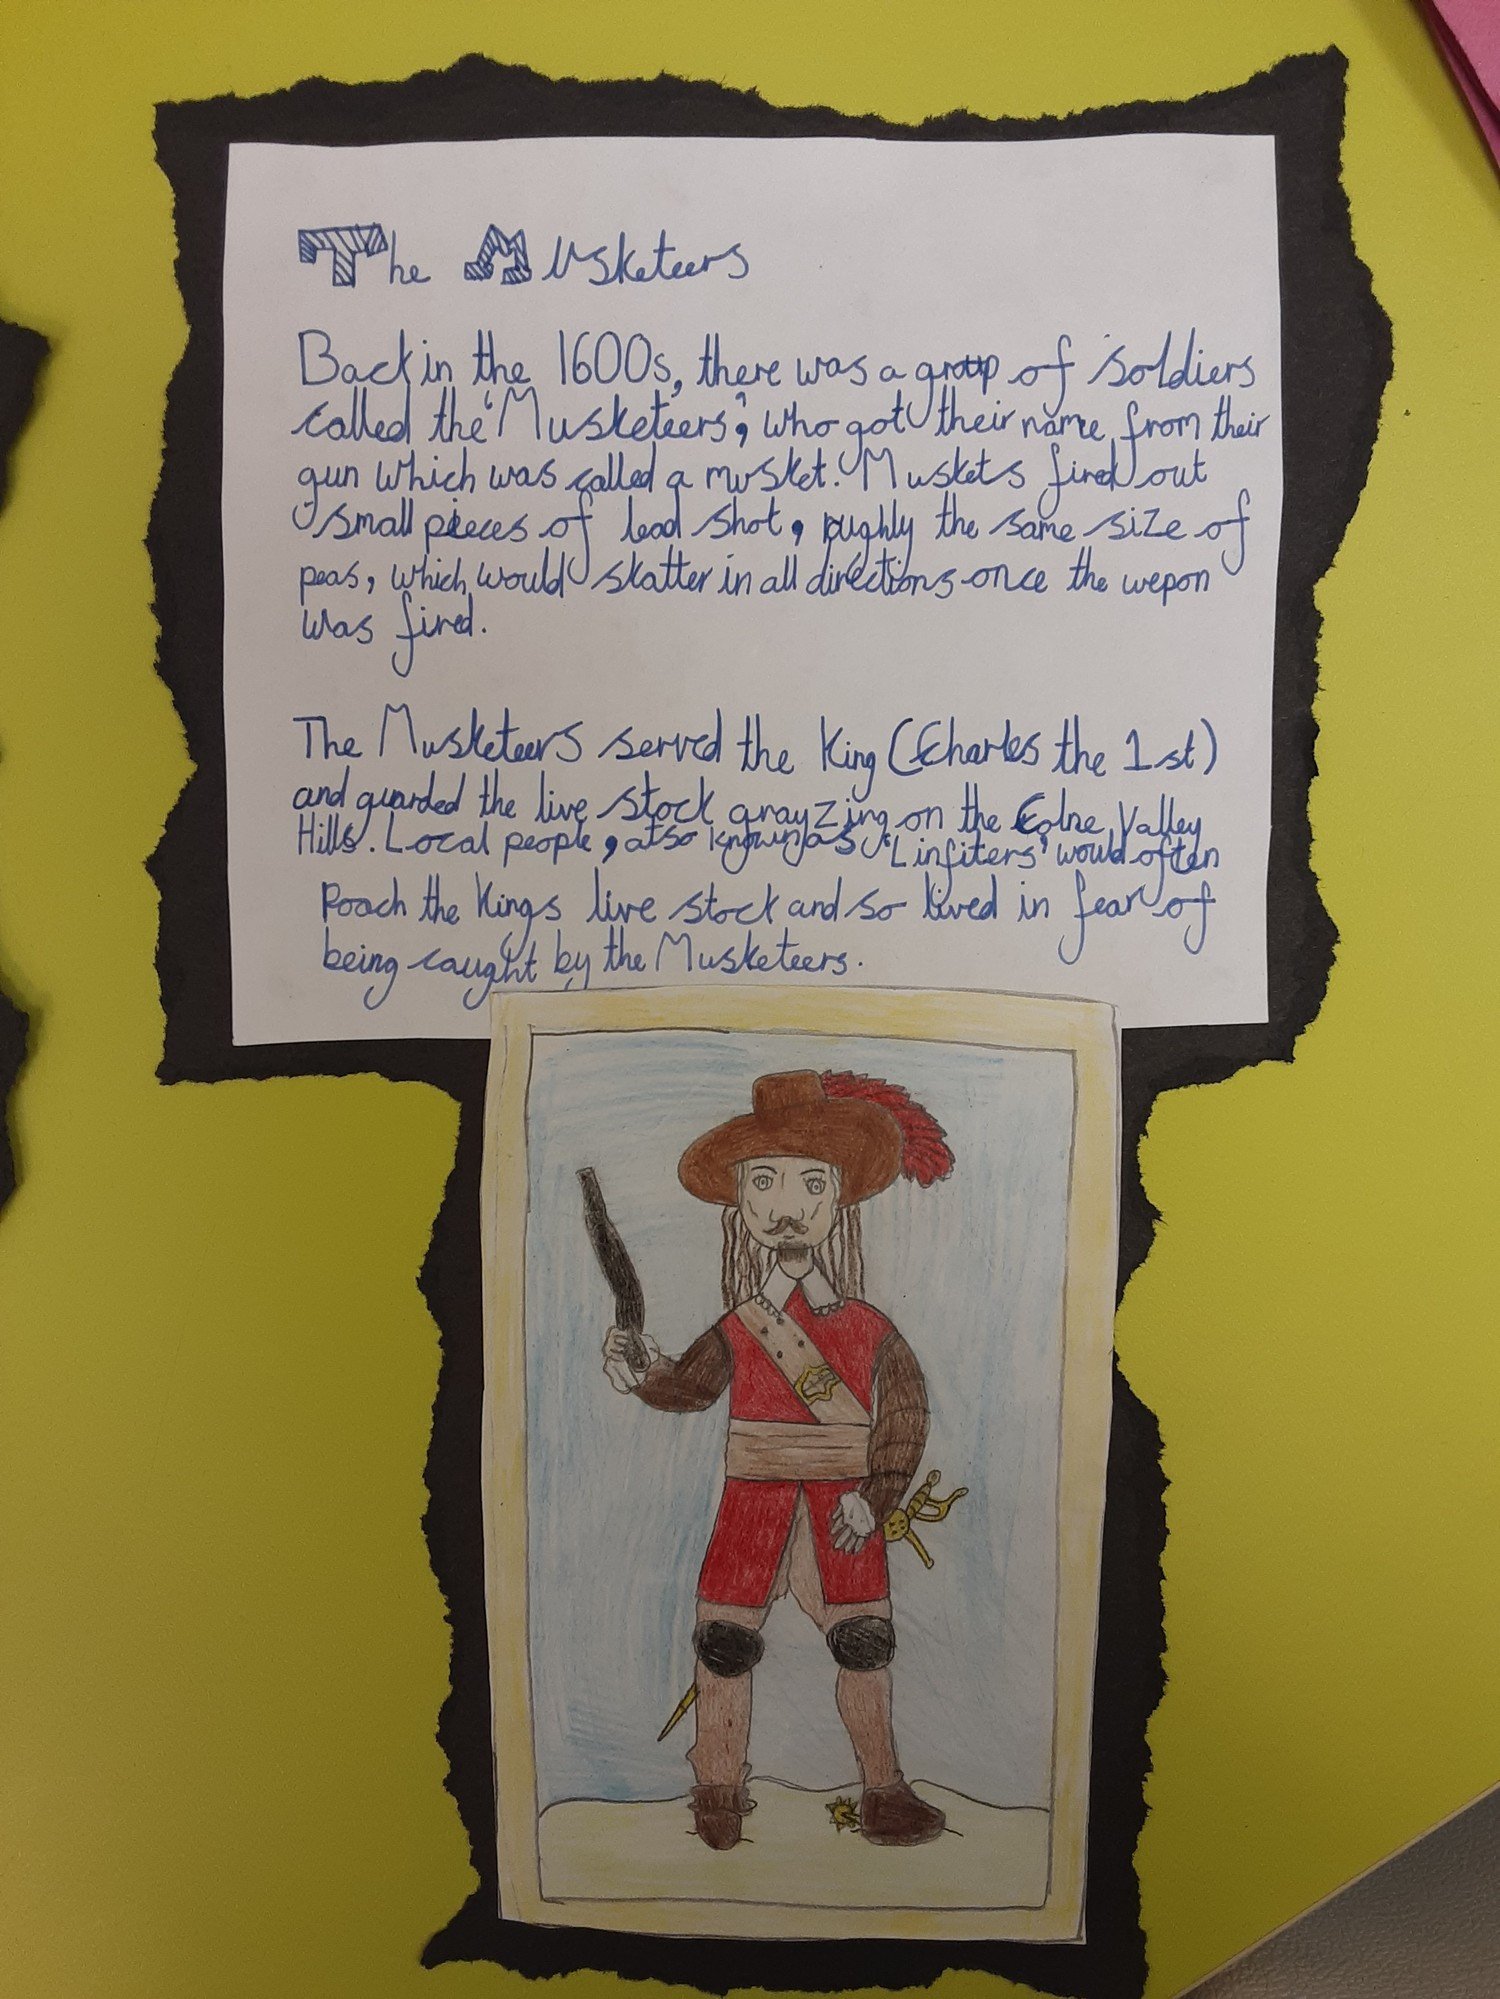 The Musketeers
Back in the 1600s, there was a group of soldiers
called the 'Musketeers', who got their name from their
gun which was called a musket. Muskets fired out
small pieces of lead shot, roughly the same size of
peas, which would skatter in all directions once the wepon
was fired.
The Musketeers served the King (Charles the 1st)
and guarded the live stock grayzing on the Colne Valley
Hills. Local people, also known as 'Linfiters' would often
Poach the Kings live stock and so lived in fear of
being caught by the Musketeers.